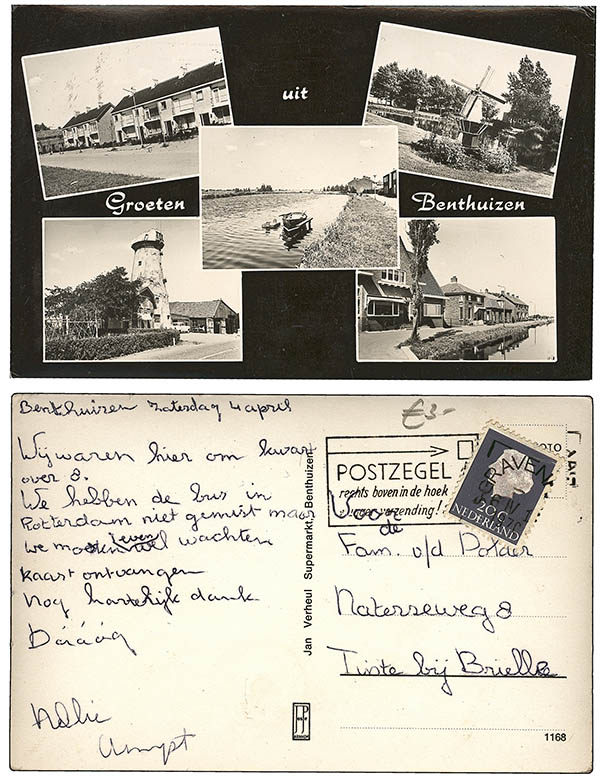 uit
Groeten
Benthuizen
Benthuizen zaterdag 4 april
Wij waren hier om kwart
over 8.
We hebben de bus in
Rotterdam niet gemist maar
we moesten wel even wachten
kaart ontvangen
nog hartelijk dank
Dááág
Jan Verheul Supermarkt, Benthuizen
€3-
POSTZEGEL
rechts boven in de hoek
verzending!
GRAVEN
20c
NEDERLAND
Voor
de
Fam. v/d Polder
Naterseweg 8
Tinte bij Brielle
1168